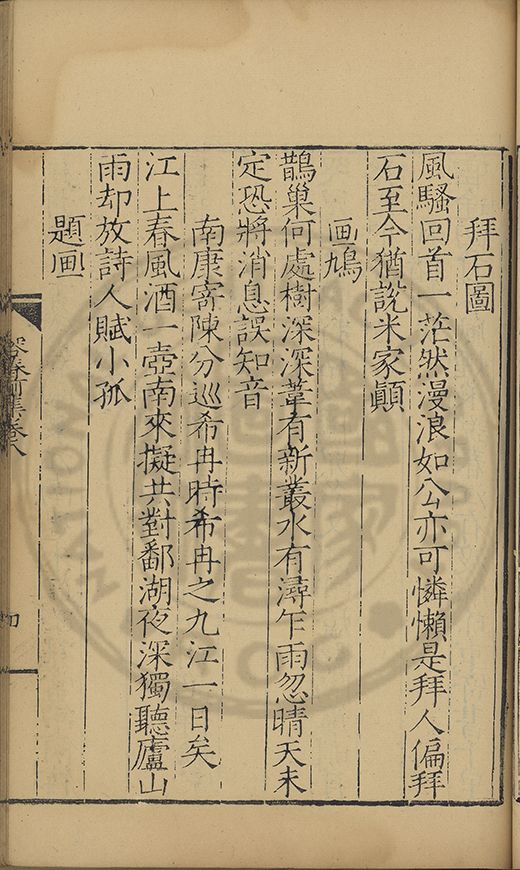 拜石圖
風騷回首一茫然漫浪如公亦可憐懶是拜人偏拜
石至今猶說米家顛
画鳩
鵲巢何處樹深深葦有新叢水有潯乍雨忽晴天未
定恐將消息誤知音
南康寄陳分巡希冉時希冉之九江一日矣
江上春風酒一壺南來擬共對鄱湖夜深獨聽廬山
雨却放詩人賦小孤
題画